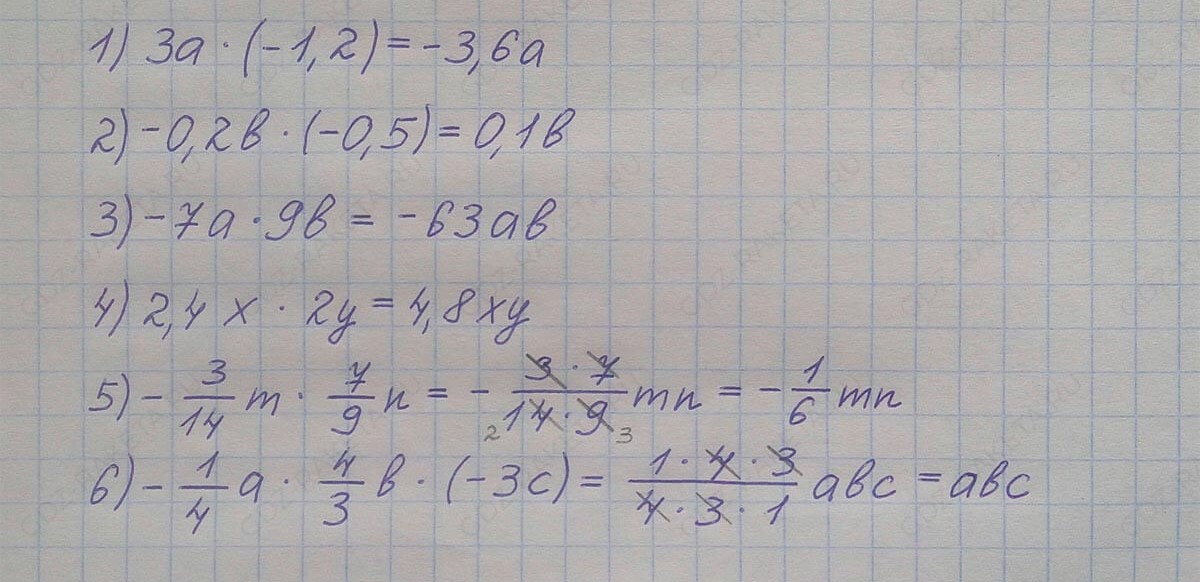 1) 3a · (-1,2) = -3,6a
2) -0,2в · (-0,5) = 0,1в
3) -7a · 9в = -63aв
4) 2,4x · 2y = 4,8xy
5) - 3/14 m · 7/9 n = - 3·7/14·9 mn = - 1/6 mn
2 3
6) - 1/4 a · 4/3 в · (-3c) = 1·4·3/4·3·1 aвc = aвc